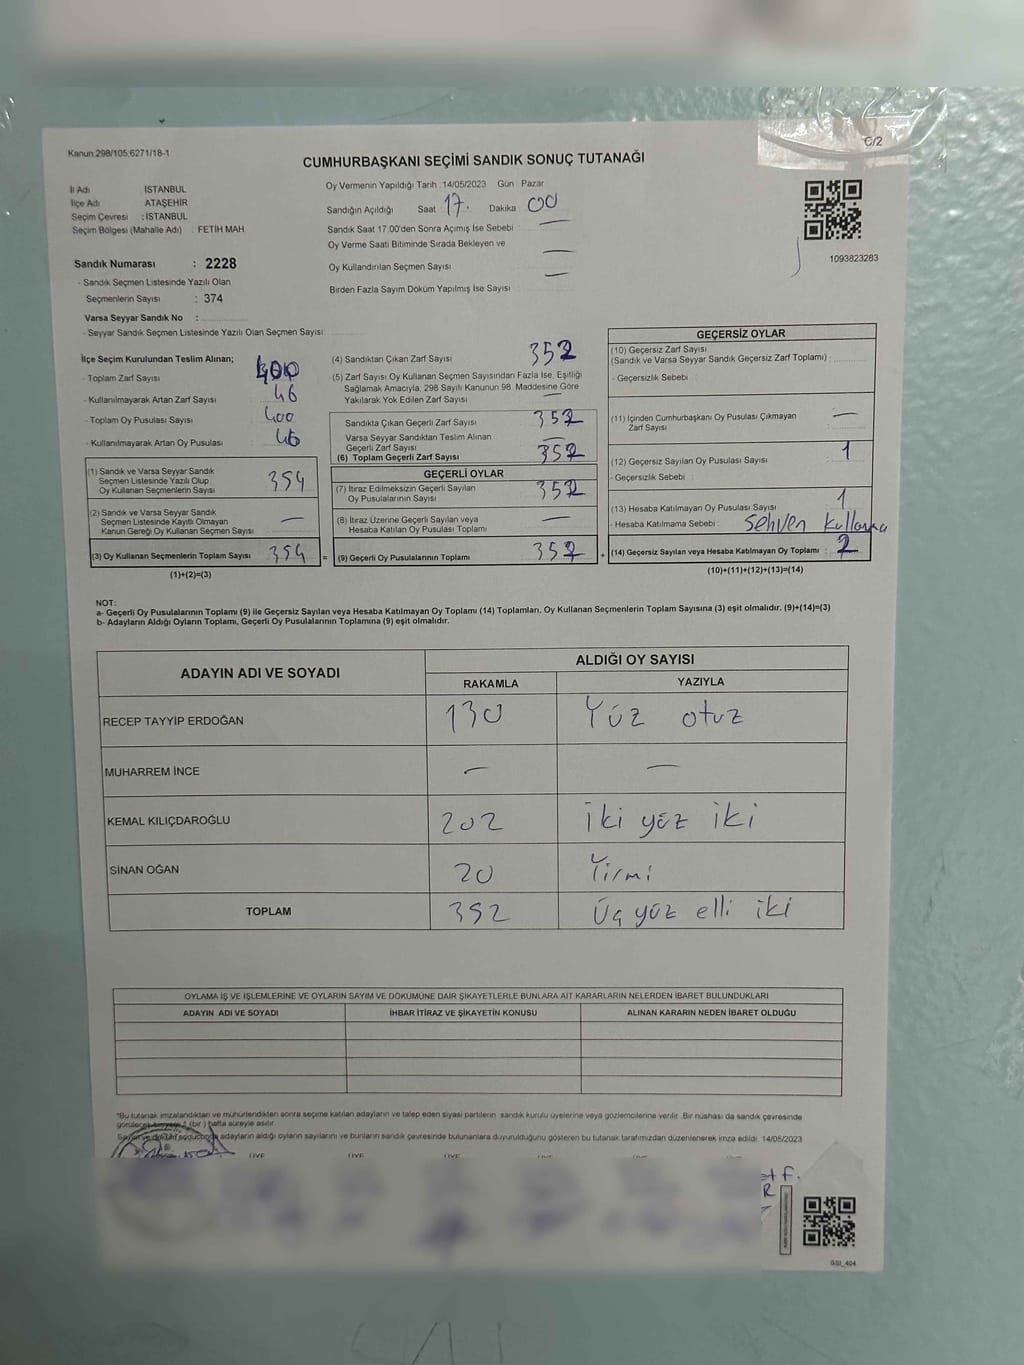 Kanun:298/105;6271/18-1
C/2
CUMHURBAŞKANI SEÇİMİ SANDIK SONUÇ TUTANAĞI
İl Adı İSTANBUL
İlçe Adı ATAŞEHİR
Seçim Çevresi : İSTANBUL
Seçim Bölgesi (Mahalle Adı) : FETİH MAH
Sandık Numarası : 2228
- Sandık Seçmen Listesinde Yazılı Olan
Seçmenlerin Sayısı : 374
Varsa Seyyar Sandık No :
- Seyyar Sandık Seçmen Listesinde Yazılı Olan Seçmen Sayısı:
Oy Vermenin Yapıldığı Tarih :14/05/2023 Gün Pazar
Sandığın Açıldığı Saat 17. Dakika 00
Sandık Saat 17.00'den Sonra Açımış İse Sebebi —
Oy Verme Saati Bitiminde Sırada Bekleyen ve
Oy Kullandırılan Seçmen Sayısı —
Birden Fazla Sayım Döküm Yapılmış İse Sayısı —
1093823283
İlçe Seçim Kurulundan Teslim Alınan;
- Toplam Zarf Sayısı 400
- Kullanılmayarak Artan Zarf Sayısı 46
- Toplam Oy Pusulası Sayısı 400
- Kullanılmayarak Artan Oy Pusulası 46
(1) Sandık ve Varsa Seyyar Sandık
Seçmen Listesinde Yazılı Olup
Oy Kullanan Seçmenlerin Sayısı 354
(2) Sandık ve Varsa Seyyar Sandık
Seçmen Listesinde Kayıtlı Olmayan
Kanun Gereği Oy Kullanan Seçmen Sayısı —
(3) Oy Kullanan Seçmenlerin Toplam Sayısı 354 =
(1)+(2)=(3)
(4) Sandıktan Çıkan Zarf Sayısı 352
(5) Zarf Sayısı Oy Kullanan Seçmen Sayısından Fazla İse, Eşitliği
Sağlamak Amacıyla, 298 Sayılı Kanunun 98. Maddesine Göre
Yakılarak Yok Edilen Zarf Sayısı —
Sandıkta Çıkan Geçerli Zarf Sayısı 352
Varsa Seyyar Sandıktan Teslim Alınan
Geçerli Zarf Sayısı —
(6) Toplam Geçerli Zarf Sayısı 352
GEÇERLİ OYLAR
(7) İtiraz Edilmeksizin Geçerli Sayılan
Oy Pusulalarının Sayısı 352
(8) İtiraz Üzerine Geçerli Sayılan veya
Hesaba Katılan Oy Pusulası Toplamı —
(9) Geçerli Oy Pusulalarının Toplamı 352 +
GEÇERSİZ OYLAR
(10) Geçersiz Zarf Sayısı
(Sandık ve Varsa Seyyar Sandık Geçersiz Zarf Toplamı) :
- Geçersizlik Sebebi :
(11) İçinden Cumhurbaşkanı Oy Pusulası Çıkmayan
Zarf Sayısı : —
(12) Geçersiz Sayılan Oy Pusulası Sayısı : 1
- Geçersizlik Sebebi :
(13) Hesaba Katılmayan Oy Pusulası Sayısı : 1
- Hesaba Katılmama Sebebi : Sehven
(14) Geçersiz Sayılan veya Hesaba Katılmayan Oy Toplamı : 2
(10)+(11)+(12)+(13)=(14)
NOT:
a- Geçerli Oy Pusulalarının Toplamı (9) ile Geçersiz Sayılan veya Hesaba Katılmayan Oy Toplamı (14) Toplamları, Oy Kullanan Seçmenlerin Toplam Sayısına (3) eşit olmalıdır. (9)+(14)=(3)
b- Adayların Aldığı Oyların Toplamı, Geçerli Oy Pusulalarının Toplamına (9) eşit olmalıdır.
ADAYIN ADI VE SOYADI ALDIĞI OY SAYISI
RAKAMLA YAZIYLA
RECEP TAYYİP ERDOĞAN 130 Yüz otuz
MUHARREM İNCE — —
KEMAL KILIÇDAROĞLU 202 İki yüz iki
SİNAN OĞAN 20 Yirmi
TOPLAM 352 Üç yüz elli iki
OYLAMA İŞ VE İŞLEMLERİNE VE OYLARIN SAYIM VE DÖKÜMÜNE DAİR ŞİKAYETLERLE BUNLARA AİT KARARLARIN NELERDEN İBARET BULUNDUKLARI
ADAYIN ADI VE SOYADI İHBAR İTİRAZ VE ŞİKAYETİN KONUSU ALINAN KARARIN NEDEN İBARET OLDUĞU
*Bu tutanak imzalandıktan ve mühürlendikten sonra seçime katılan adayların ve talep eden siyasi partilerin sandık kurulu üyelerine veya gözlemcilerine verilir. Bir nüshası da sandık çevresinde
görülecek bir yere 1 (bir ) hafta süreyle asılır.
Sayım ve döküm sonucunda adayların aldığı oyların sayılarını ve bunların sandık çevresinde bulunanlara duyurulduğunu gösteren bu tutanak tarafımızdan düzenlenerek imza edildi. 14/05/2023
GSI_404